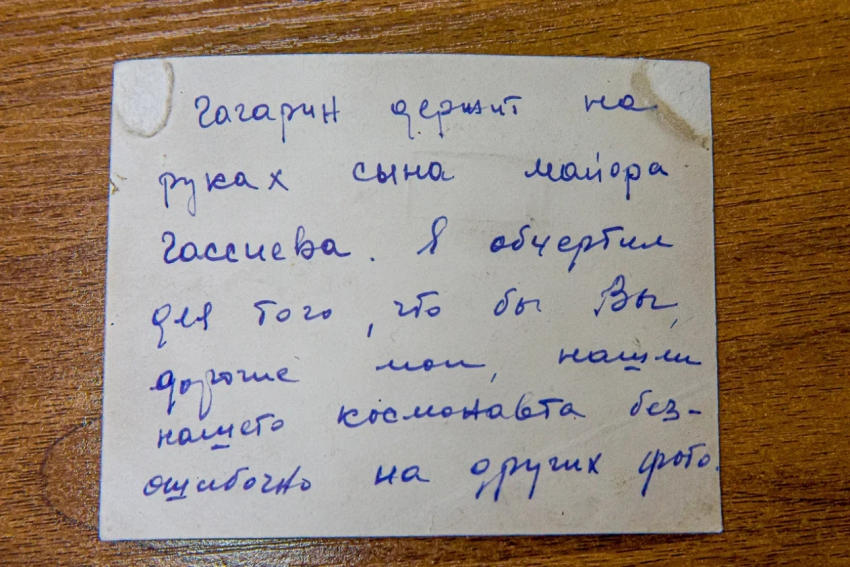 Гагарин держит на
руках сына майора
Гассиева. Я обчертил
для того, что бы Вы,
дорогие мои, нашли
нашего космонавта без-
ошибочно на других фото.